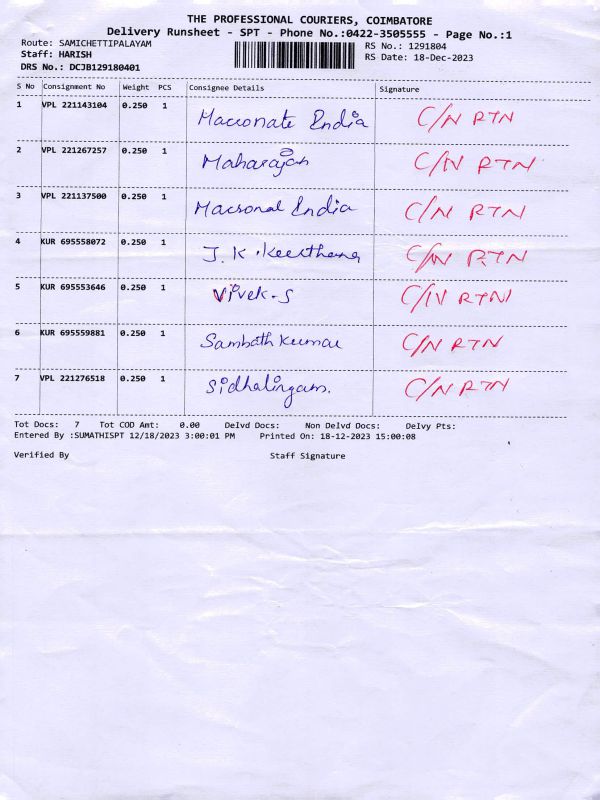 THE PROFESSIONAL COURIERS, COIMBATORE
Delivery Runsheet - SPT - Phone No.:0422-3505555 - Page No.:1
Route: SAMICHETTIPALAYAM
RS No.: 1291804
Staff: HARISH
RS Date: 18-Dec-2023
DRS No.: DCJB129180401
S No Consignment No Weight PCS Consignee Details Signature
1 VPL 221143104 0.250 1 Macronate India C/N RTN
2 VPL 221267257 0.250 1 Maharajan C/N RTN
3 VPL 221137500 0.250 1 Macsonal India C/N RTN
4 KUR 695558072 0.250 1 J.K.Keerthana C/N RTN
5 KUR 695553646 0.250 1 Vivek-S C/N RTN
6 KUR 695559881 0.250 1 Sambath Kumar C/N RTN
7 VPL 221276518 0.250 1 Sidhalingam. C/N RTN
Tot Docs: 7 Tot COD Amt: 0.00 Delvd Docs: Non Delvd Docs: Delvy Pts:
Entered By :SUMATHISPT 12/18/2023 3:00:01 PM Printed On: 18-12-2023 15:00:08
Verified By Staff Signature